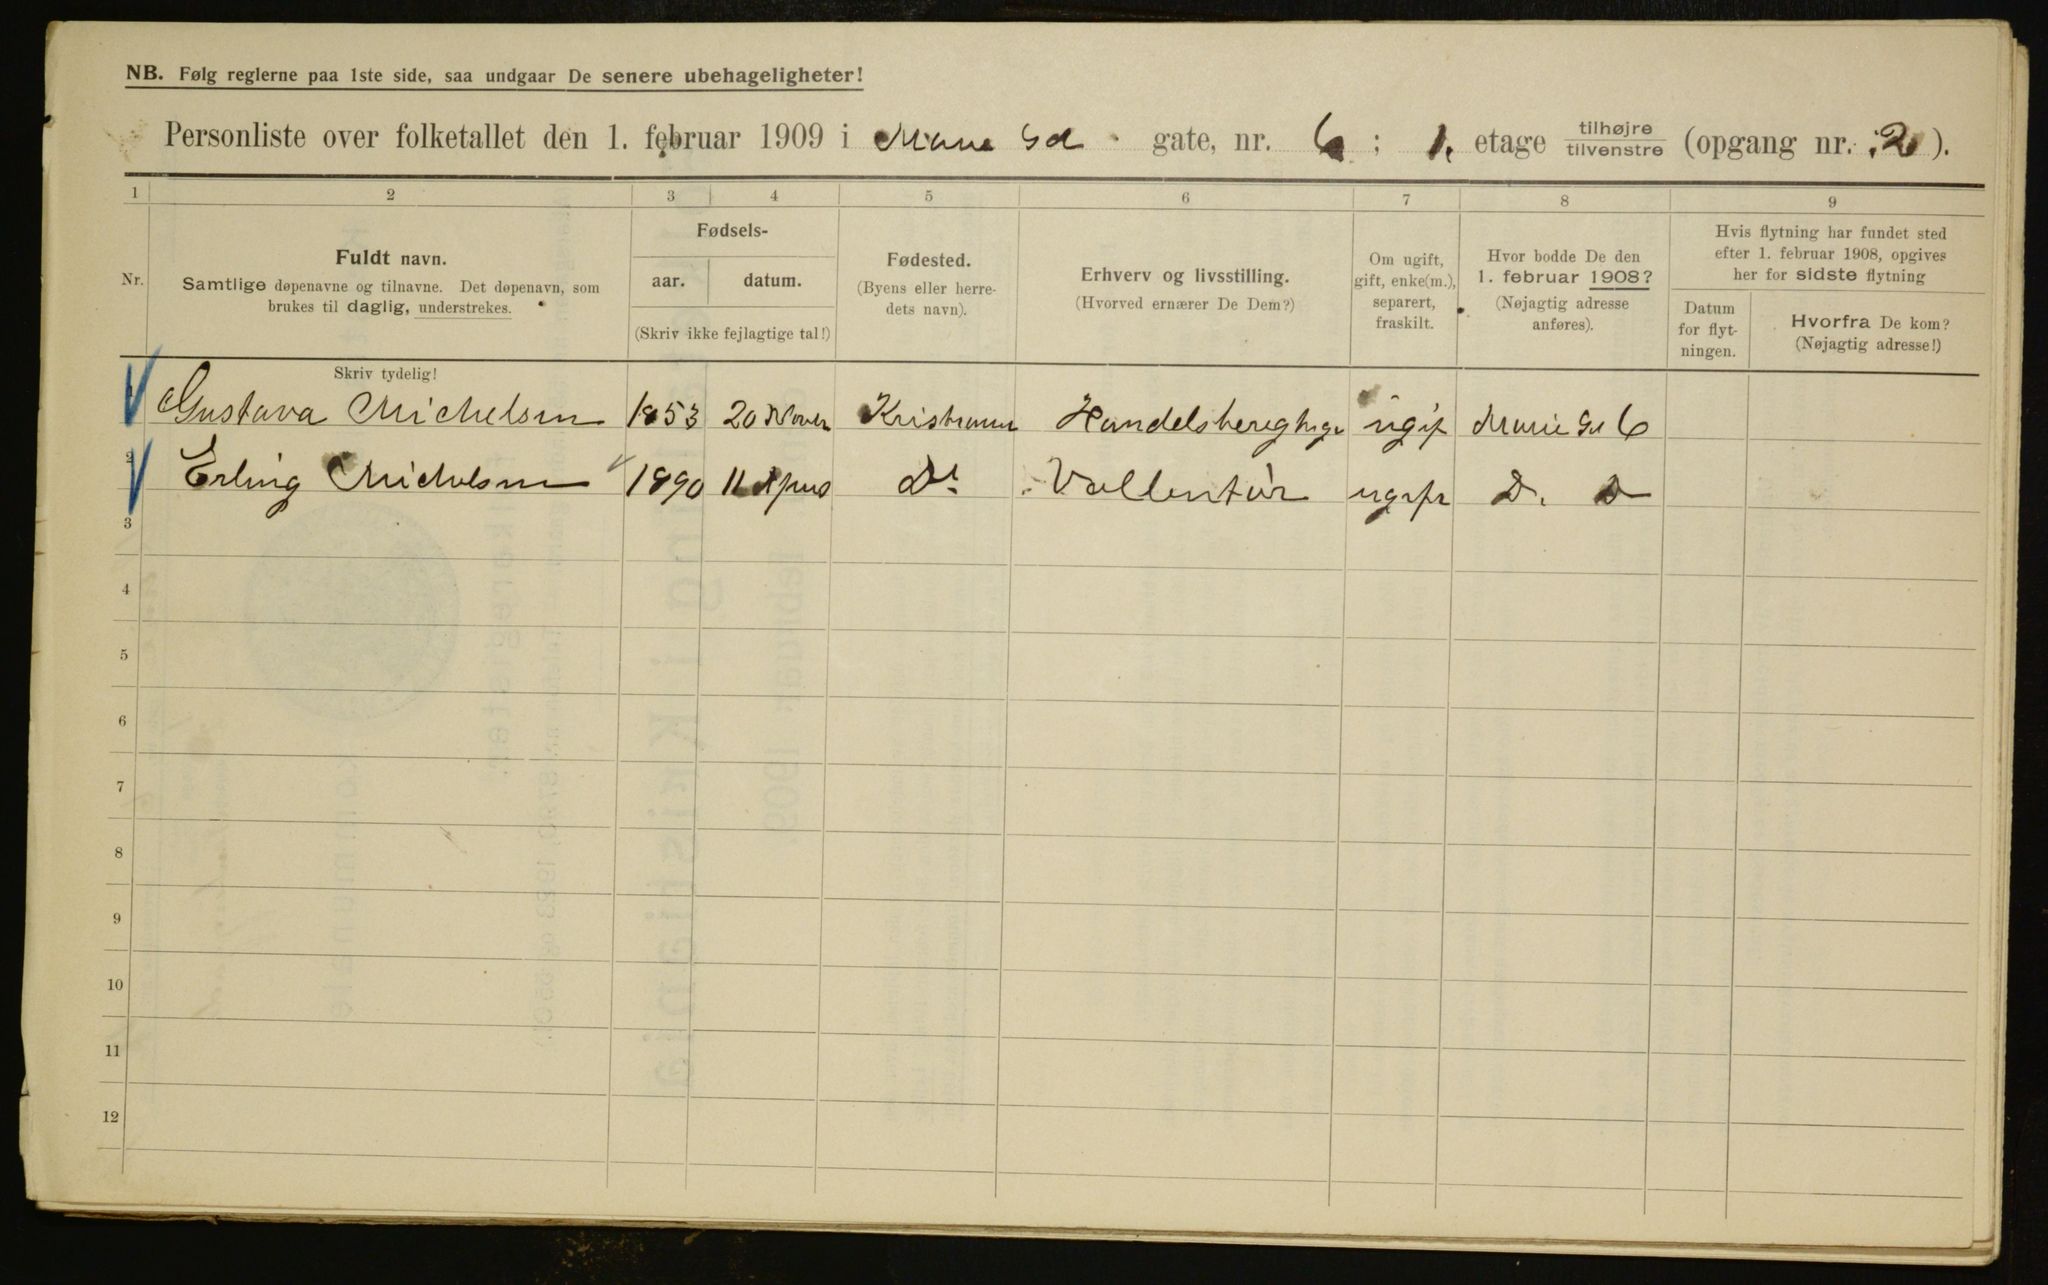 NB. Følg reglerne paa 1ste side, saa undgaar De senere ubehageligheter!
Personliste over folketallet den 1. februar 1909 i Marie Gd gate, nr. 6; 1. etage tilhøjre tilvenstre (opgang nr. 2).
1 2 3 4 5 6 7 8 9
Nr.
Fuldt navn.
Samtlige døpenavne og tilnavne. Det døpenavn, som
brukes til daglig, understrekes.
Fødsels-
aar. datum.
(Skriv ikke fejlagtige tal!)
Fødested.
(Byens eller herre-
dets navn).
Erhverv og livsstilling.
(Hvorved ernærer De Dem?)
Om ugift,
gift, enke(m.),
separert,
fraskilt.
Hvor bodde De den
1. februar 1908?
(Nøjagtig adresse
anføres).
Hvis flytning har fundet sted
efter 1. februar 1908, opgives
her for sidste flytning
Datum
for flyt-
ningen.
Hvorfra De kom?
(Nøjagtig adresse!)
Skriv tydelig!
Gustava Michelsen 1853 20 Novem ugif Marie Gd 6
2 Erling Michelsen 1890 11 Do D. D
3
4
5
6
7
8
9
10
11
12